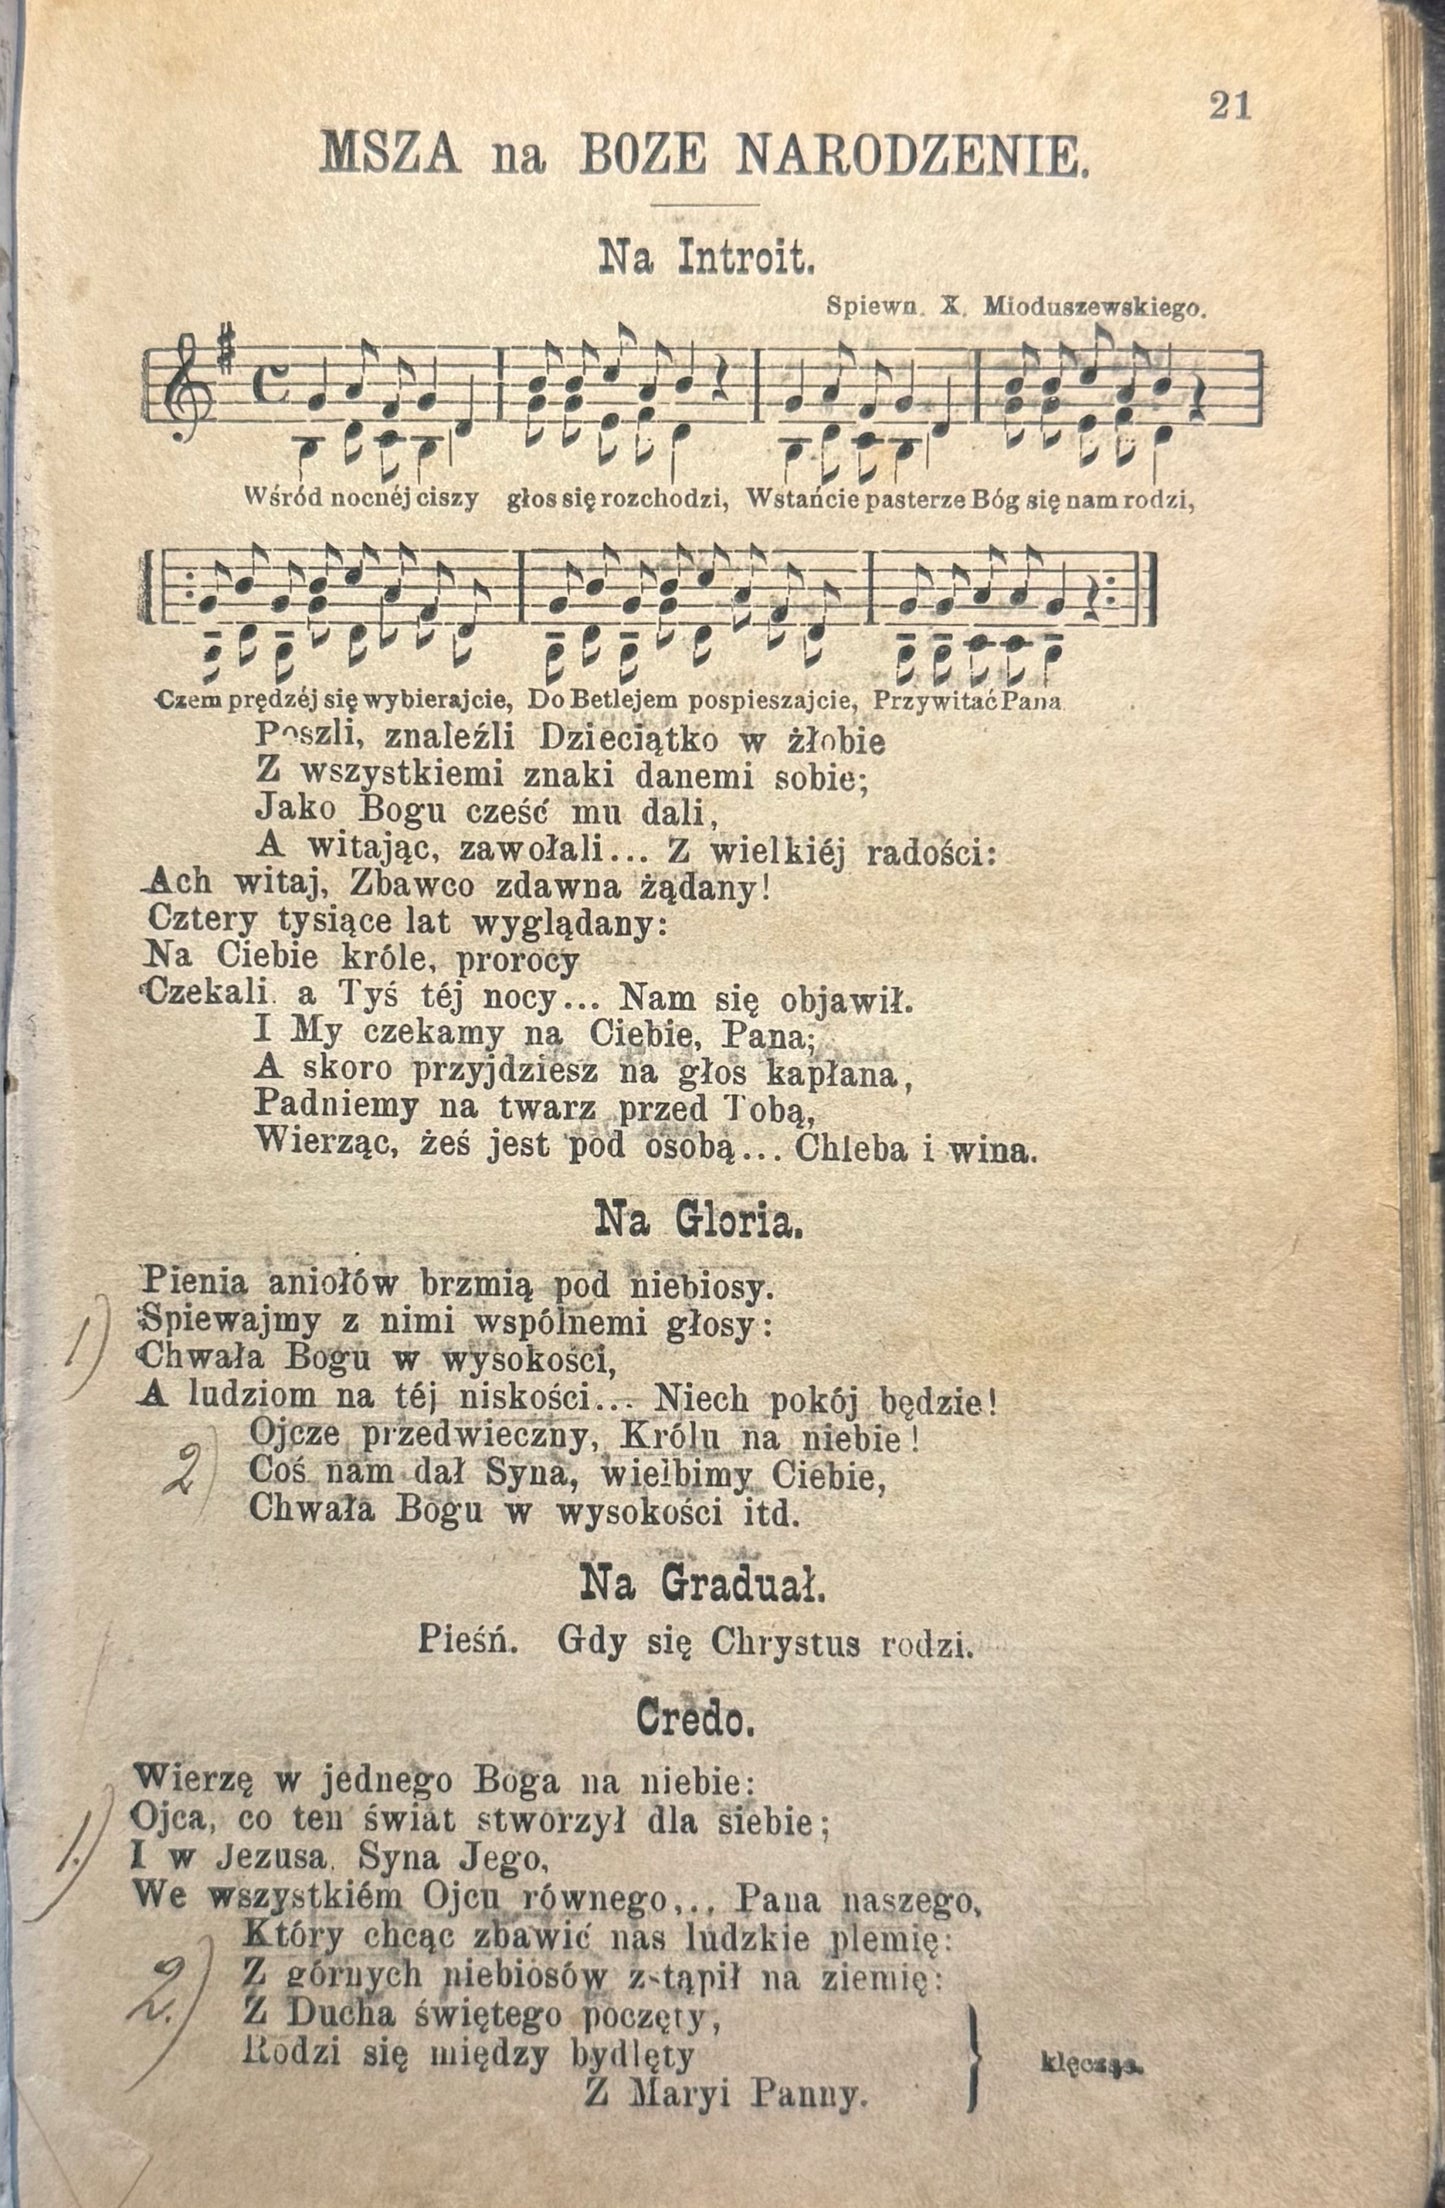 21
MSZA na BOZE NARODZENIE.
Na Introit.
Spiewn. X. Mioduszewskiego.
Wśród nocnéj ciszy głos się rozchodzi, Wstańcie pasterze Bóg się nam rodzi,
Czem prędzéj się wybierajcie, Do Betlejem pospieszajcie, Przywitać Pana
Poszli, znaleźli Dzieciątko w żłobie
Z wszystkiemi znaki danemi sobie;
Jako Bogu cześć mu dali,
A witając, zawołali... Z wielkiéj radości:
Ach witaj, Zbawco zdawna żądany!
Cztery tysiące lat wyglądany:
Na Ciebie króle, prorocy
Czekali. a Tyś téj nocy... Nam się objawił.
I My czekamy na Ciebie, Pana;
A skoro przyjdziesz na głos kapłana,
Padniemy na twarz przed Tobą,
Wierząc, żeś jest pod osobą... Chleba i wina.
Na Gloria.
Pienia aniołów brzmią pod niebiosy.
1) Spiewajmy z nimi wspólnemi głosy:
Chwała Bogu w wysokości,
A ludziom na téj niskości... Niech pokój będzie!
Ojcze przedwieczny, Królu na niebie!
2) Coś nam dał Syna, wielbimy Ciebie,
Chwała Bogu w wysokości itd.
Na Graduał.
Pieśń. Gdy się Chrystus rodzi.
Credo.
Wierzę w jednego Boga na niebie:
Ojca, co ten świat stworzył dla siebie;
1.) I w Jezusa. Syna Jego,
We wszystkiém Ojcu równego... Pana naszego,
Który chcąc zbawić nas ludzkie plemię:
2.) Z górnych niebiosów zstąpił na ziemię:
Z Ducha świętego poczęty,
Rodzi się między bydlęty
Z Maryi Panny.
klęcząc.